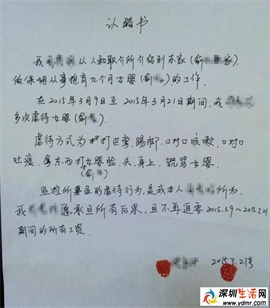 认错书
我 从人和职介所介绍到东家(俞 家)
做保姆从事抚育九个月女婴(俞 )的工作。
在2015年3月9日至2015年3月21日期间,我
多次虐待女婴(俞 )。
虐待方式为:打巴掌、踢脚、口对口咳嗽、口对口
吐痰、拿东西打女婴脸、头、身上、谎骂女婴
(俞 )
监控所录显的虐待行为,是我本人 所为。
我 愿承担所有后果,且不再追要2015.3.9~2015.3.21
期间的所有工资。
2015.3.21号
深圳生活网
www.ydmr.com